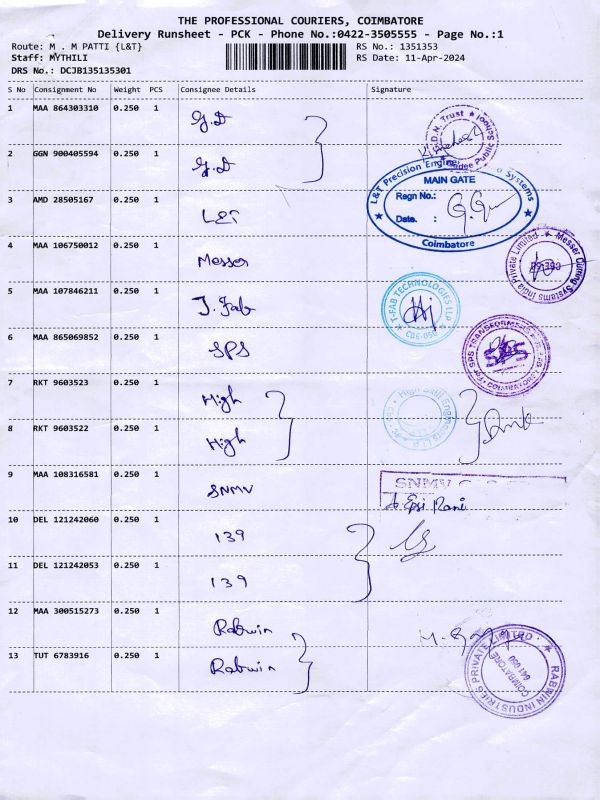 THE PROFESSIONAL COURIERS, COIMBATORE
Delivery Runsheet - PCK - Phone No.:0422-3505555 - Page No.:1
Route: M . M PATTI {L&T}
RS No.: 1351353
Staff: MYTHILI
RS Date: 11-Apr-2024
DRS No.: DCJB135135301
S No Consignment No Weight PCS Consignee Details Signature
1 MAA 864303310 0.250 1 G.D
D.N. Trust
Public School
2 GGN 900405594 0.250 1 G.D
L&T Precision Engine Systems
MAIN GATE
Regn No.:
Date. :
Coimbatore
3 AMD 28505167 0.250 1 L&T
4 MAA 106750012 0.250 1 Messer
Messer Cutting Systems India Private Limited
5 MAA 107846211 0.250 1 T. Fab
T-FAB TECHNOLOGIES LLP
CBE-050
6 MAA 865069852 0.250 1 SPS
SPS TRANSFORMERS
SPS
7 RKT 9603523 0.250 1 High
8 RKT 9603522 0.250 1 High
9 MAA 108316581 0.250 1 SNMV
SNMV
Epsi Rani
10 DEL 121242060 0.250 1 139
11 DEL 121242053 0.250 1 139
12 MAA 300515273 0.250 1 Rabwin
13 TUT 6783916 0.250 1 Rabwin
RABWIN INDUSTRIES PRIVATE LIMITED
COIMBATORE
641 050